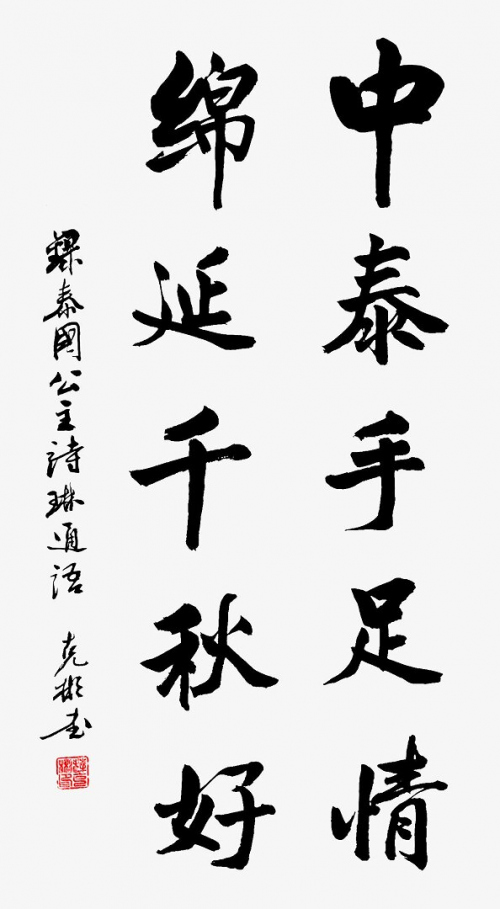 中泰手足情
绵延千秋好
録泰國公主詩琳通語 克彬书